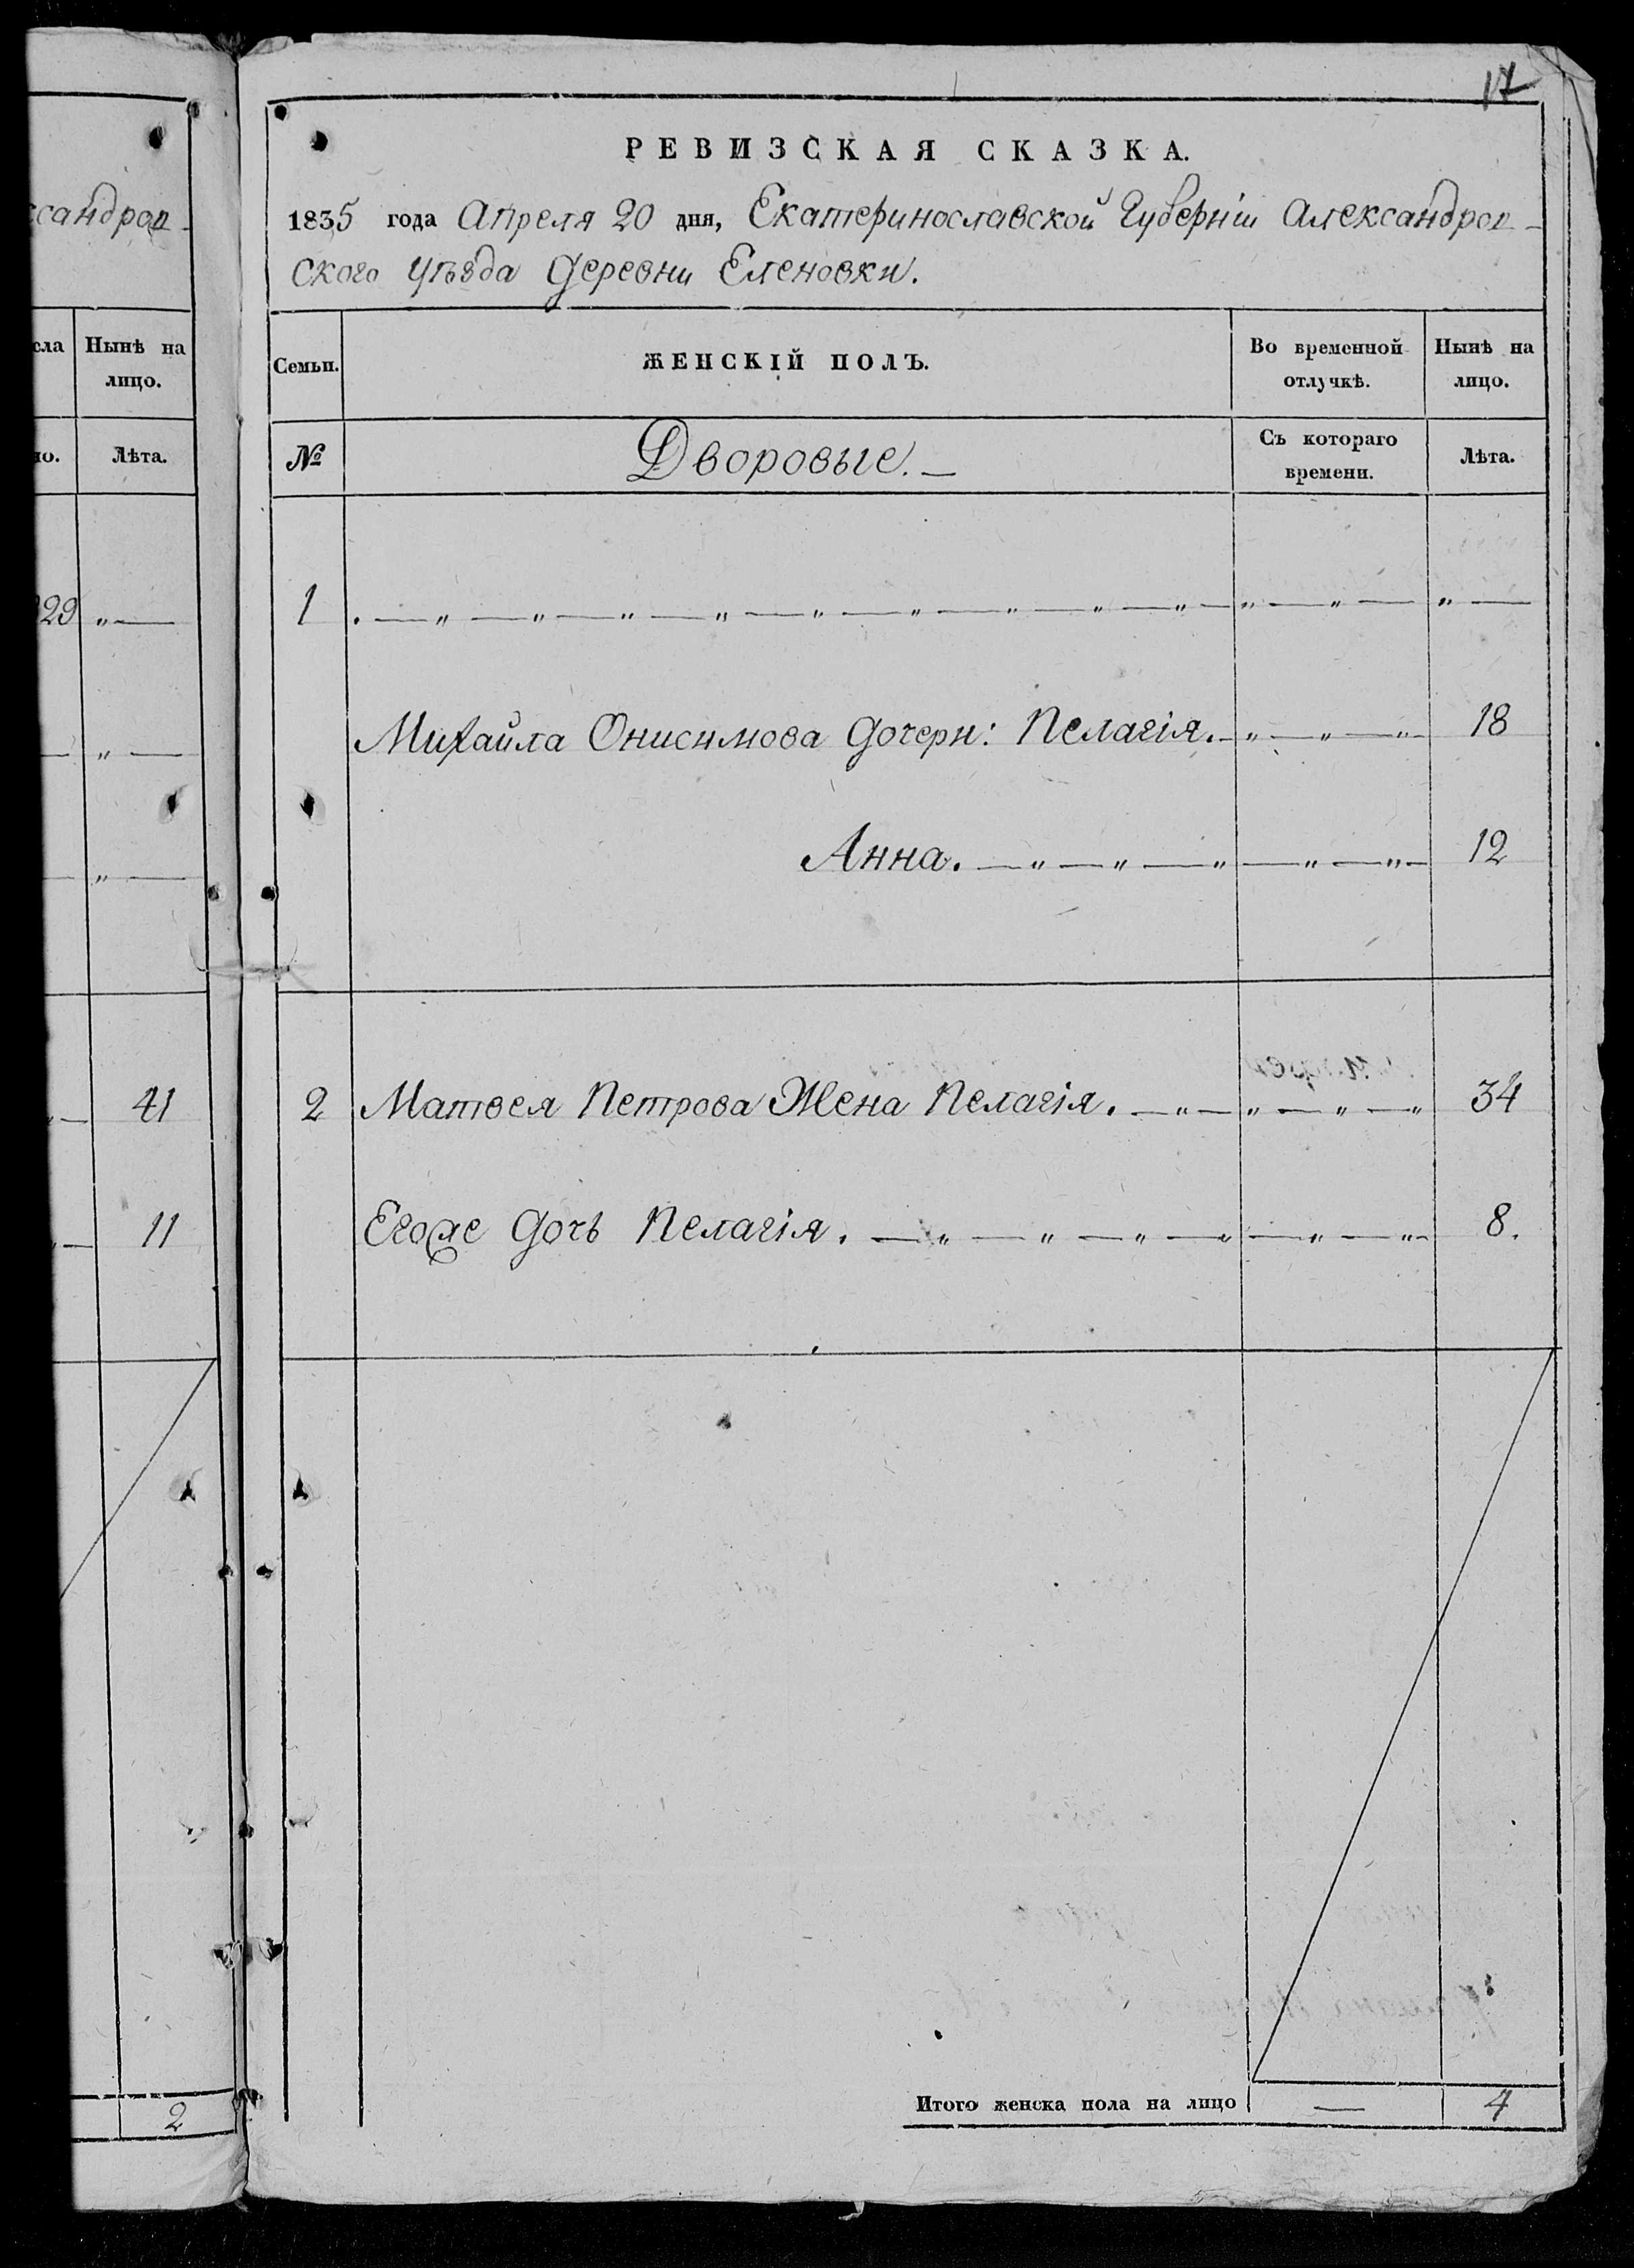 17
ксандров
сла Нынѣ на
лицо.
но. Лѣта.
29 „—
41
11
2
РЕВИЗСКАЯ СКАЗКА.
1835 года Апреля 20 дня, Екатеринославской Губерніи Александров-
ского Уѣзда Деревни Еленовки.
Семьи. ЖЕНСКІЙ ПОЛЪ. Во временной отлучкѣ. Нынѣ на лицо.
№ Дворовые.— Съ котораго времени. Лѣта.
1
Михайла Онисимова дочери: Пелагія. 18
Анна. 12
2 Матвея Петрова Жена Пелагія. 34
Егоже дочь Пелагія. 8.
Итого женска пола на лицо — 4